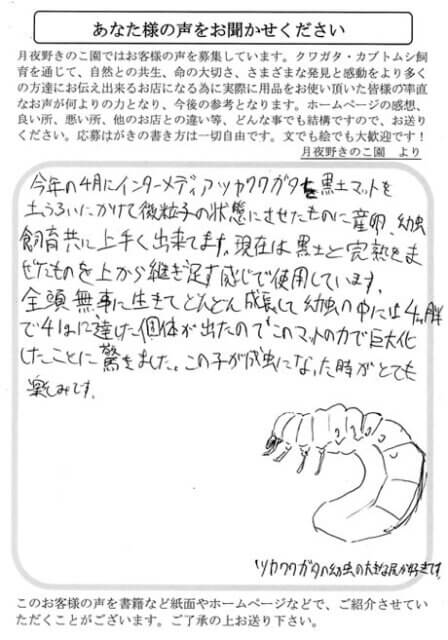 あなた様の声をお聞かせください
月夜野きのこ園ではお客様の声を募集しています。クワガタ・カブトムシ飼
育を通じて、自然との共生、命の大切さ、さまざまな発見と感動をより多く
の方達にお伝え出来るお店になる為に実際に用品をお使い頂いた皆様の率直
なお声が何よりの力となり、今後の参考となります。ホームページの感想、
良い所、悪い所、他のお店との違い等、どんな事でも結構ですので、お送り
ください。応募はがきの書き方は一切自由です。文でも絵でも大歓迎です！
月夜野きのこ園　より
今年の4月にインターメディアツヤクワガタを黒土マットを
土ふるいにかけて微粒子の状態にさせたものに産卵、幼虫
飼育共に上手く出来てます。現在は黒土と完熟をま
ぜたものを上から継ぎ足す感じで使用しています。
全頭無事に生きてどんどん成長して幼虫の中には4ヵ月半
で41gに達した個体が出たのでこのマットの力で巨大化
したことに驚きました。この子が成虫になった時がとても
楽しみです。
ツヤクワガタの幼虫の大きな尻が好きです。
このお客様の声を書籍など紙面やホームページなどで、ご紹介させてい
ただくことがございます。ご了承の上お送り下さい。